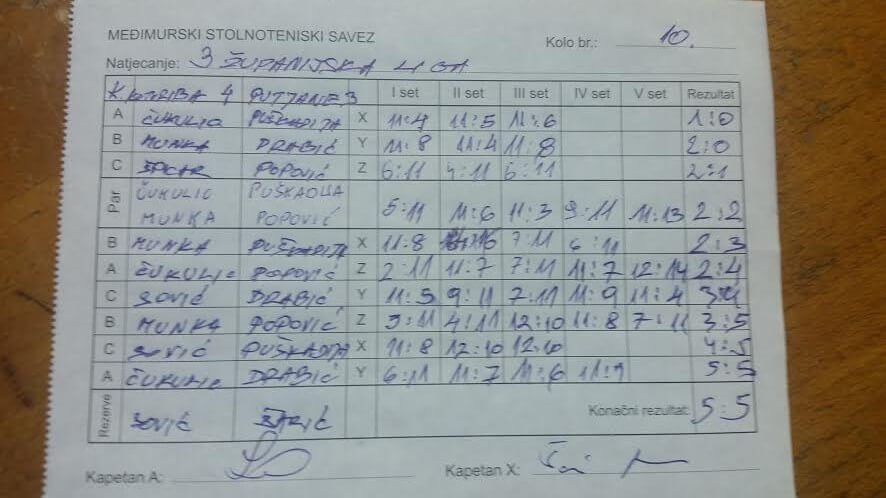 MEĐIMURSKI STOLNOTENISKI SAVEZ
Kolo br.: 10.
Natjecanje: 3 ŽUPANIJSKA LIGA
K. KOTORIBA 4 3 I set II set III set IV set V set Rezultat
A ČUKULIĆ PUŠKADIJA X 11:4 11:5 11:6 1:0
B MUNKA DRABIĆ Y 11:8 11:4 11:8 2:0
C POPOVIĆ Z 6:11 4:11 6:11 2:1
Par ČUKULIĆ PUŠKADIJA
MUNKA POPOVIĆ 5:11 11:6 11:3 9:11 11:13 2:2
B MUNKA PUŠKADIJA X 11:8 7:11 6:11 2:3
A ČUKULIĆ POPOVIĆ Z 2:11 11:7 7:11 11:7 12:14 2:4
C SOVIĆ DRABIĆ Y 11:5 9:11 7:11 11:9 11:4 3:4
B MUNKA POPOVIĆ Z 9:11 4:11 12:10 11:8 7:11 3:5
C SOVIĆ PUŠKADIJA X 11:8 12:10 12:10 4:5
A ČUKULIĆ DRABIĆ Y 6:11 11:7 11:6 11:9 5:5
Rezerve SOVIĆ ŠARIĆ Konačni rezultat: 5:5
Kapetan A: Kapetan X: